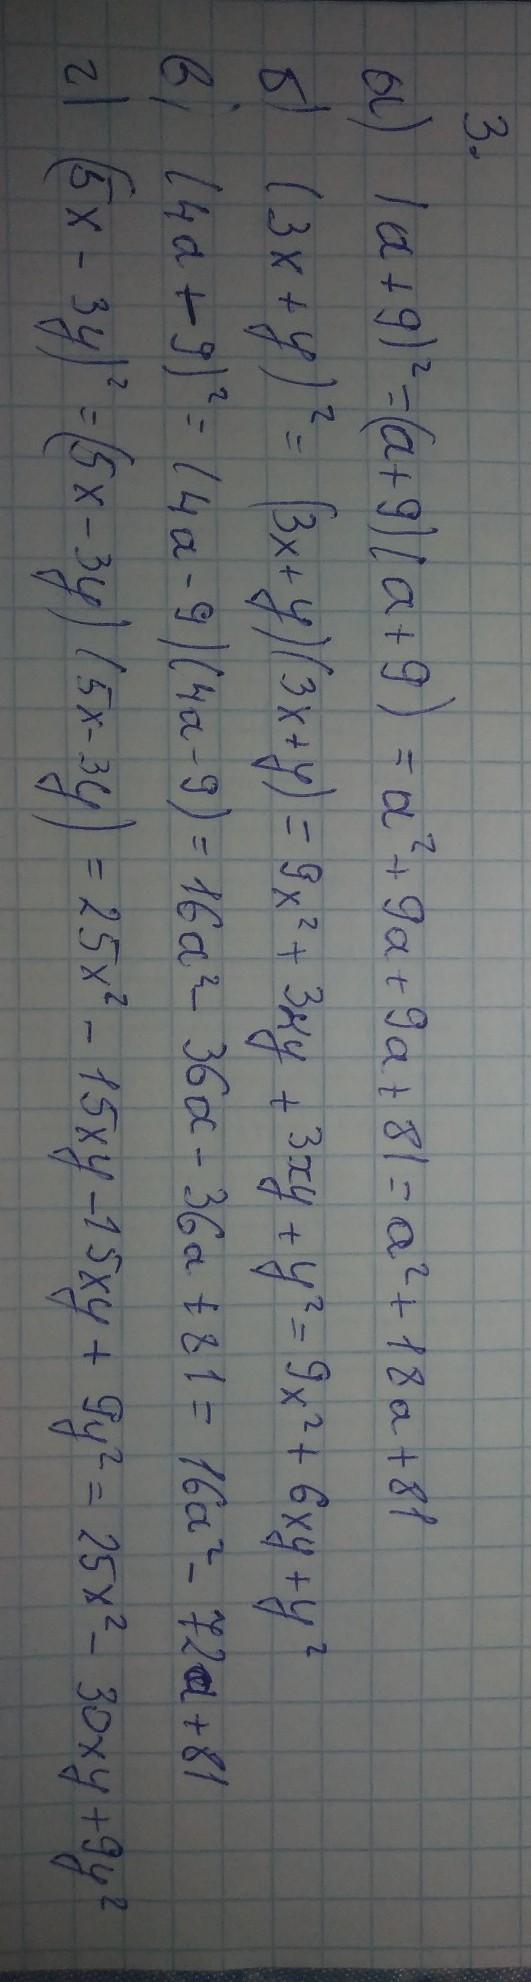 3.
а) (a + 9)² = (a + 9)(a + 9) = a² + 9a + 9a + 81 = a² + 18a + 81
б) (3x + y)² = (3x + y)(3x + y) = 9x² + 3xy + 3xy + y² = 9x² + 6xy + y²
в) (4a - 9)² = (4a - 9)(4a - 9) = 16a² - 36a - 36a + 81 = 16a² - 72a + 81
г) (5x - 3y)² = (5x - 3y)(5x - 3y) = 25x² - 15xy - 15xy + 9y² = 25x² - 30xy + 9y²